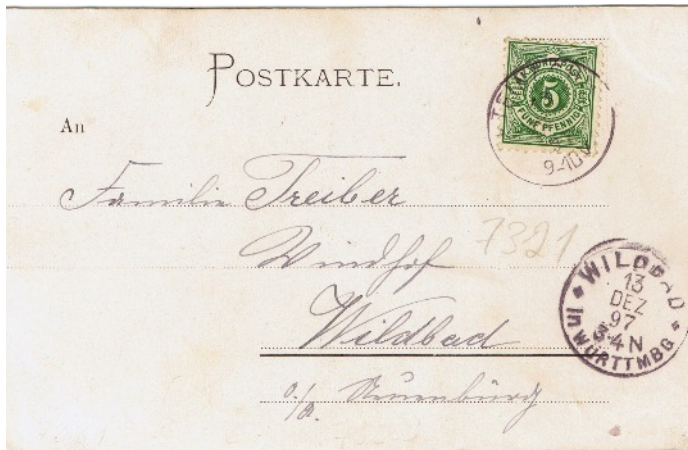 POSTKARTE.
An
Familie Treiber
Windhof
Wildbad
o/a. Neuenbürg
7321
5
FÜNF PFENNIG
9-10V
WILDBAD
13
DEZ
97
3-4N
IN WÜRTTMBG